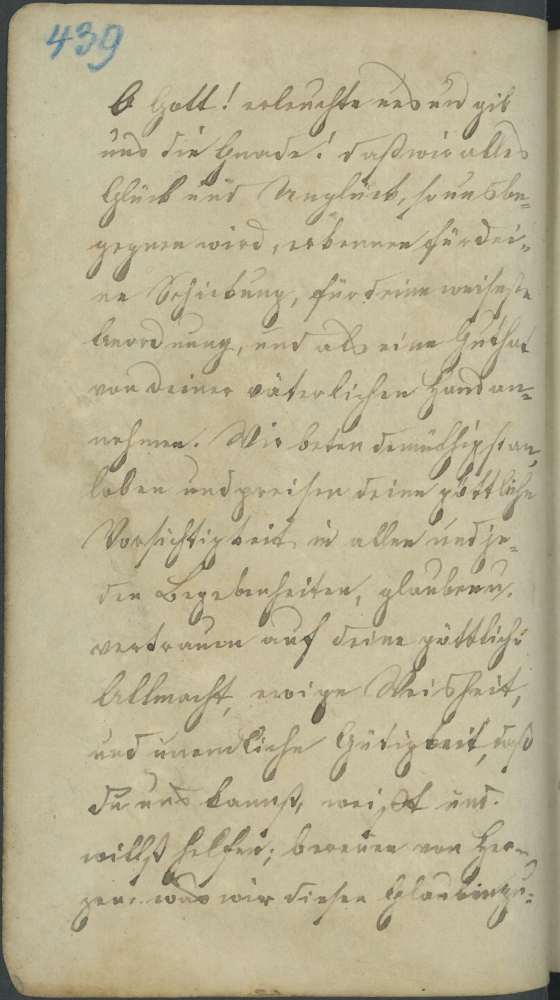 439
O Gott! erleuchte uns und gib
uns die Gnade! daß wir alles
Glück und Unglück, so uns be-
gegnen wird, erkennen für dei-
ne Schickung, für deine weiseste
Anordnung, und als eine Guthat
von deiner väterlichen Hand an-
nehmen. Wir beten demüthigst an,
loben und preisen deine göttliche
Vorsichtigkeit in allen und je-
den Begebenheiten, glauben u.
vertrauen auf deine göttliche
Allmacht, ewige Weisheit,
und unendliche Gütigkeit, daß
du uns kannst, weißt und
willst helfen; bereuen von Her-
zen was wir diesen